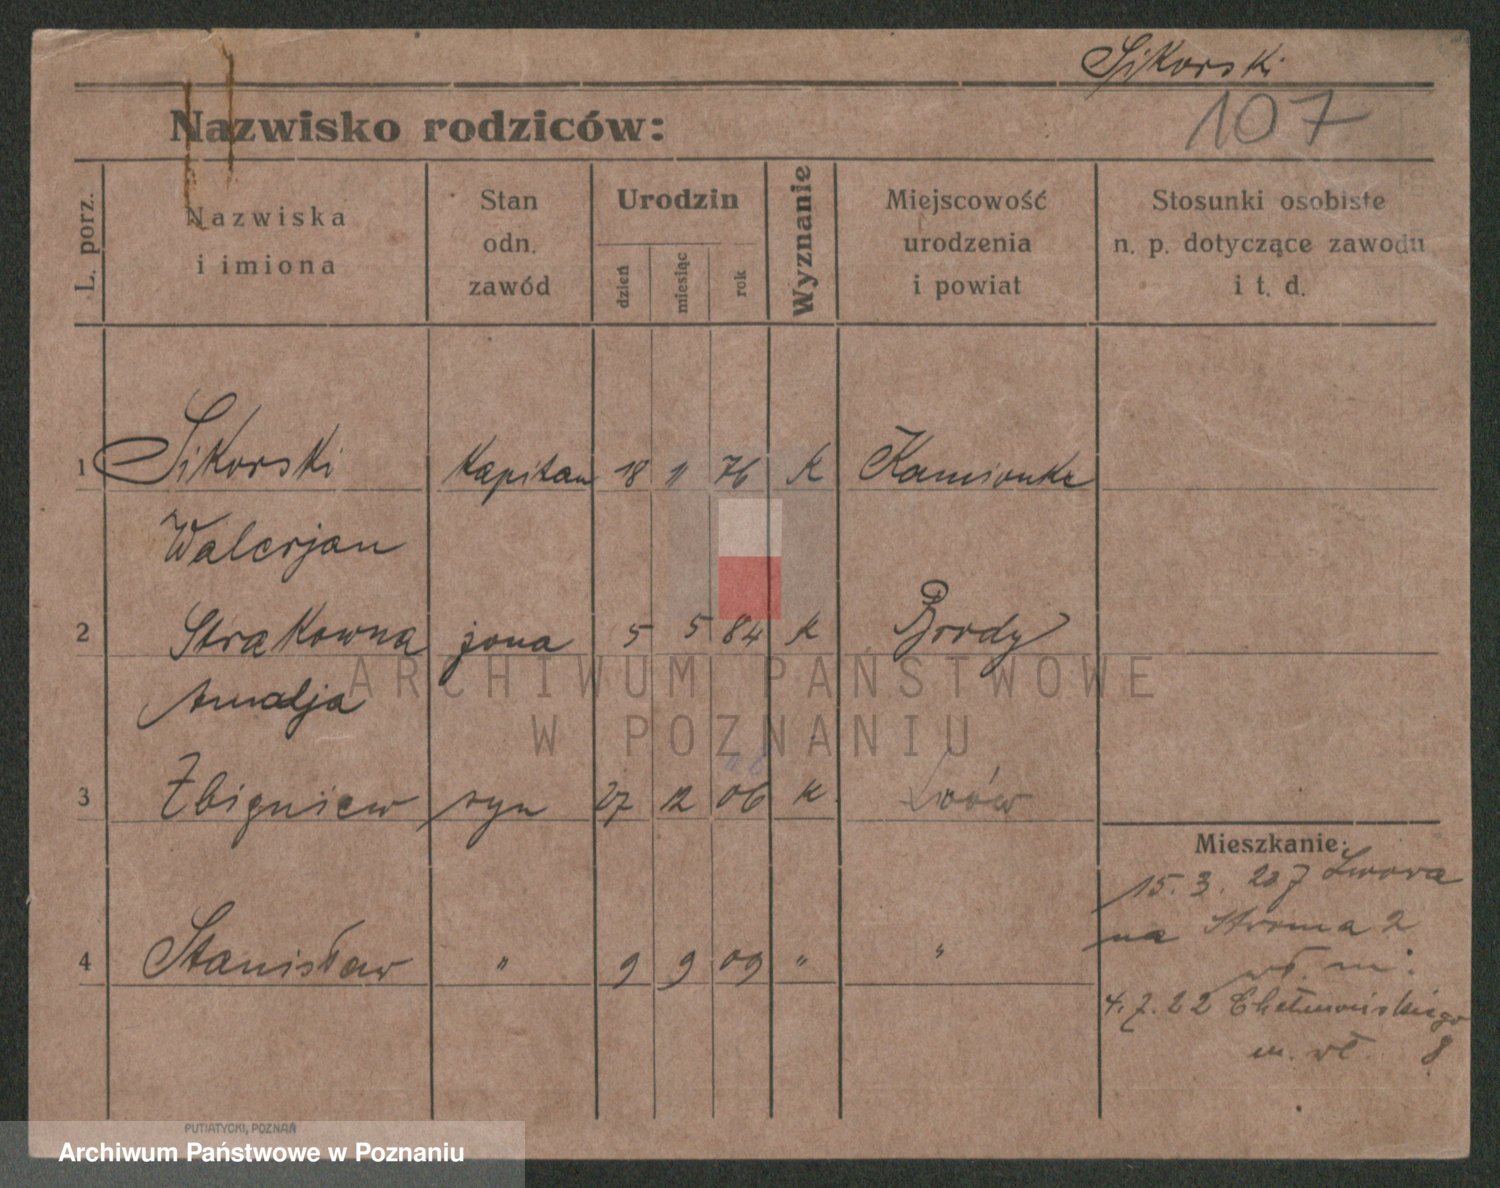 Sikorski
107
Nazwisko rodziców:
L. porz.
Nazwiska i imiona
Stan odn. zawód
Urodzin
dzień
miesiąc
rok
Wyznanie
Miejscowość urodzenia i powiat
Stosunki osobiste n. p. dotyczące zawodu i t. d.
1 Sikorski Kapitan 18 11 76 K Kamionka
Walerjan
2 Strakówna żona 5 5 84 K Brody
Amalja
3 Zbigniew syn 27 12 06 K Lwów
4 Stanisław " 9 9 09 " "
Mieszkanie:
15. 3. 20 z Lwowa
na Stroma 2
wł. m.
4. 7. 22 Chełmońskiego
m. wł. 8
PUTIATYCKI, POZNAŃ
ARCHIWUM PAŃSTWOWE
W POZNANIU
Archiwum Państwowe w Poznaniu